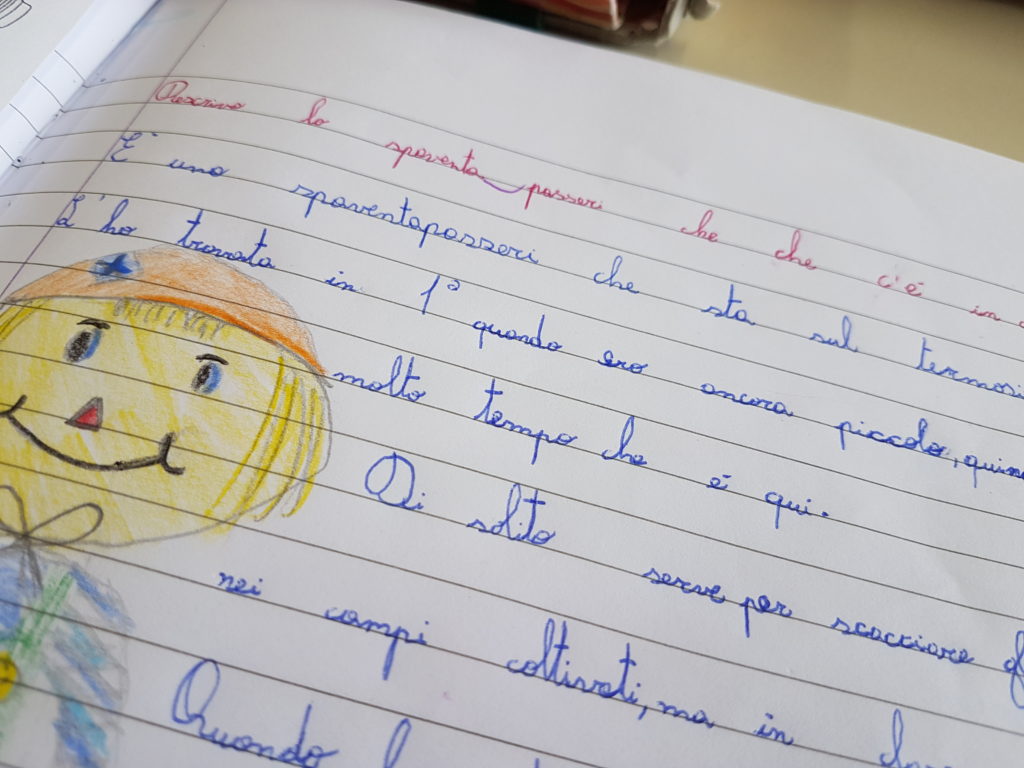 Descrivo lo spaventa passeri che che c'è in
È uno spaventapasseri che sta sul
L'ho trovato in 1ª quando ero ancora piccolo,
molto tempo che è qui.
Di solito serve per scacciare
nei campi coltivati, ma in
Quando